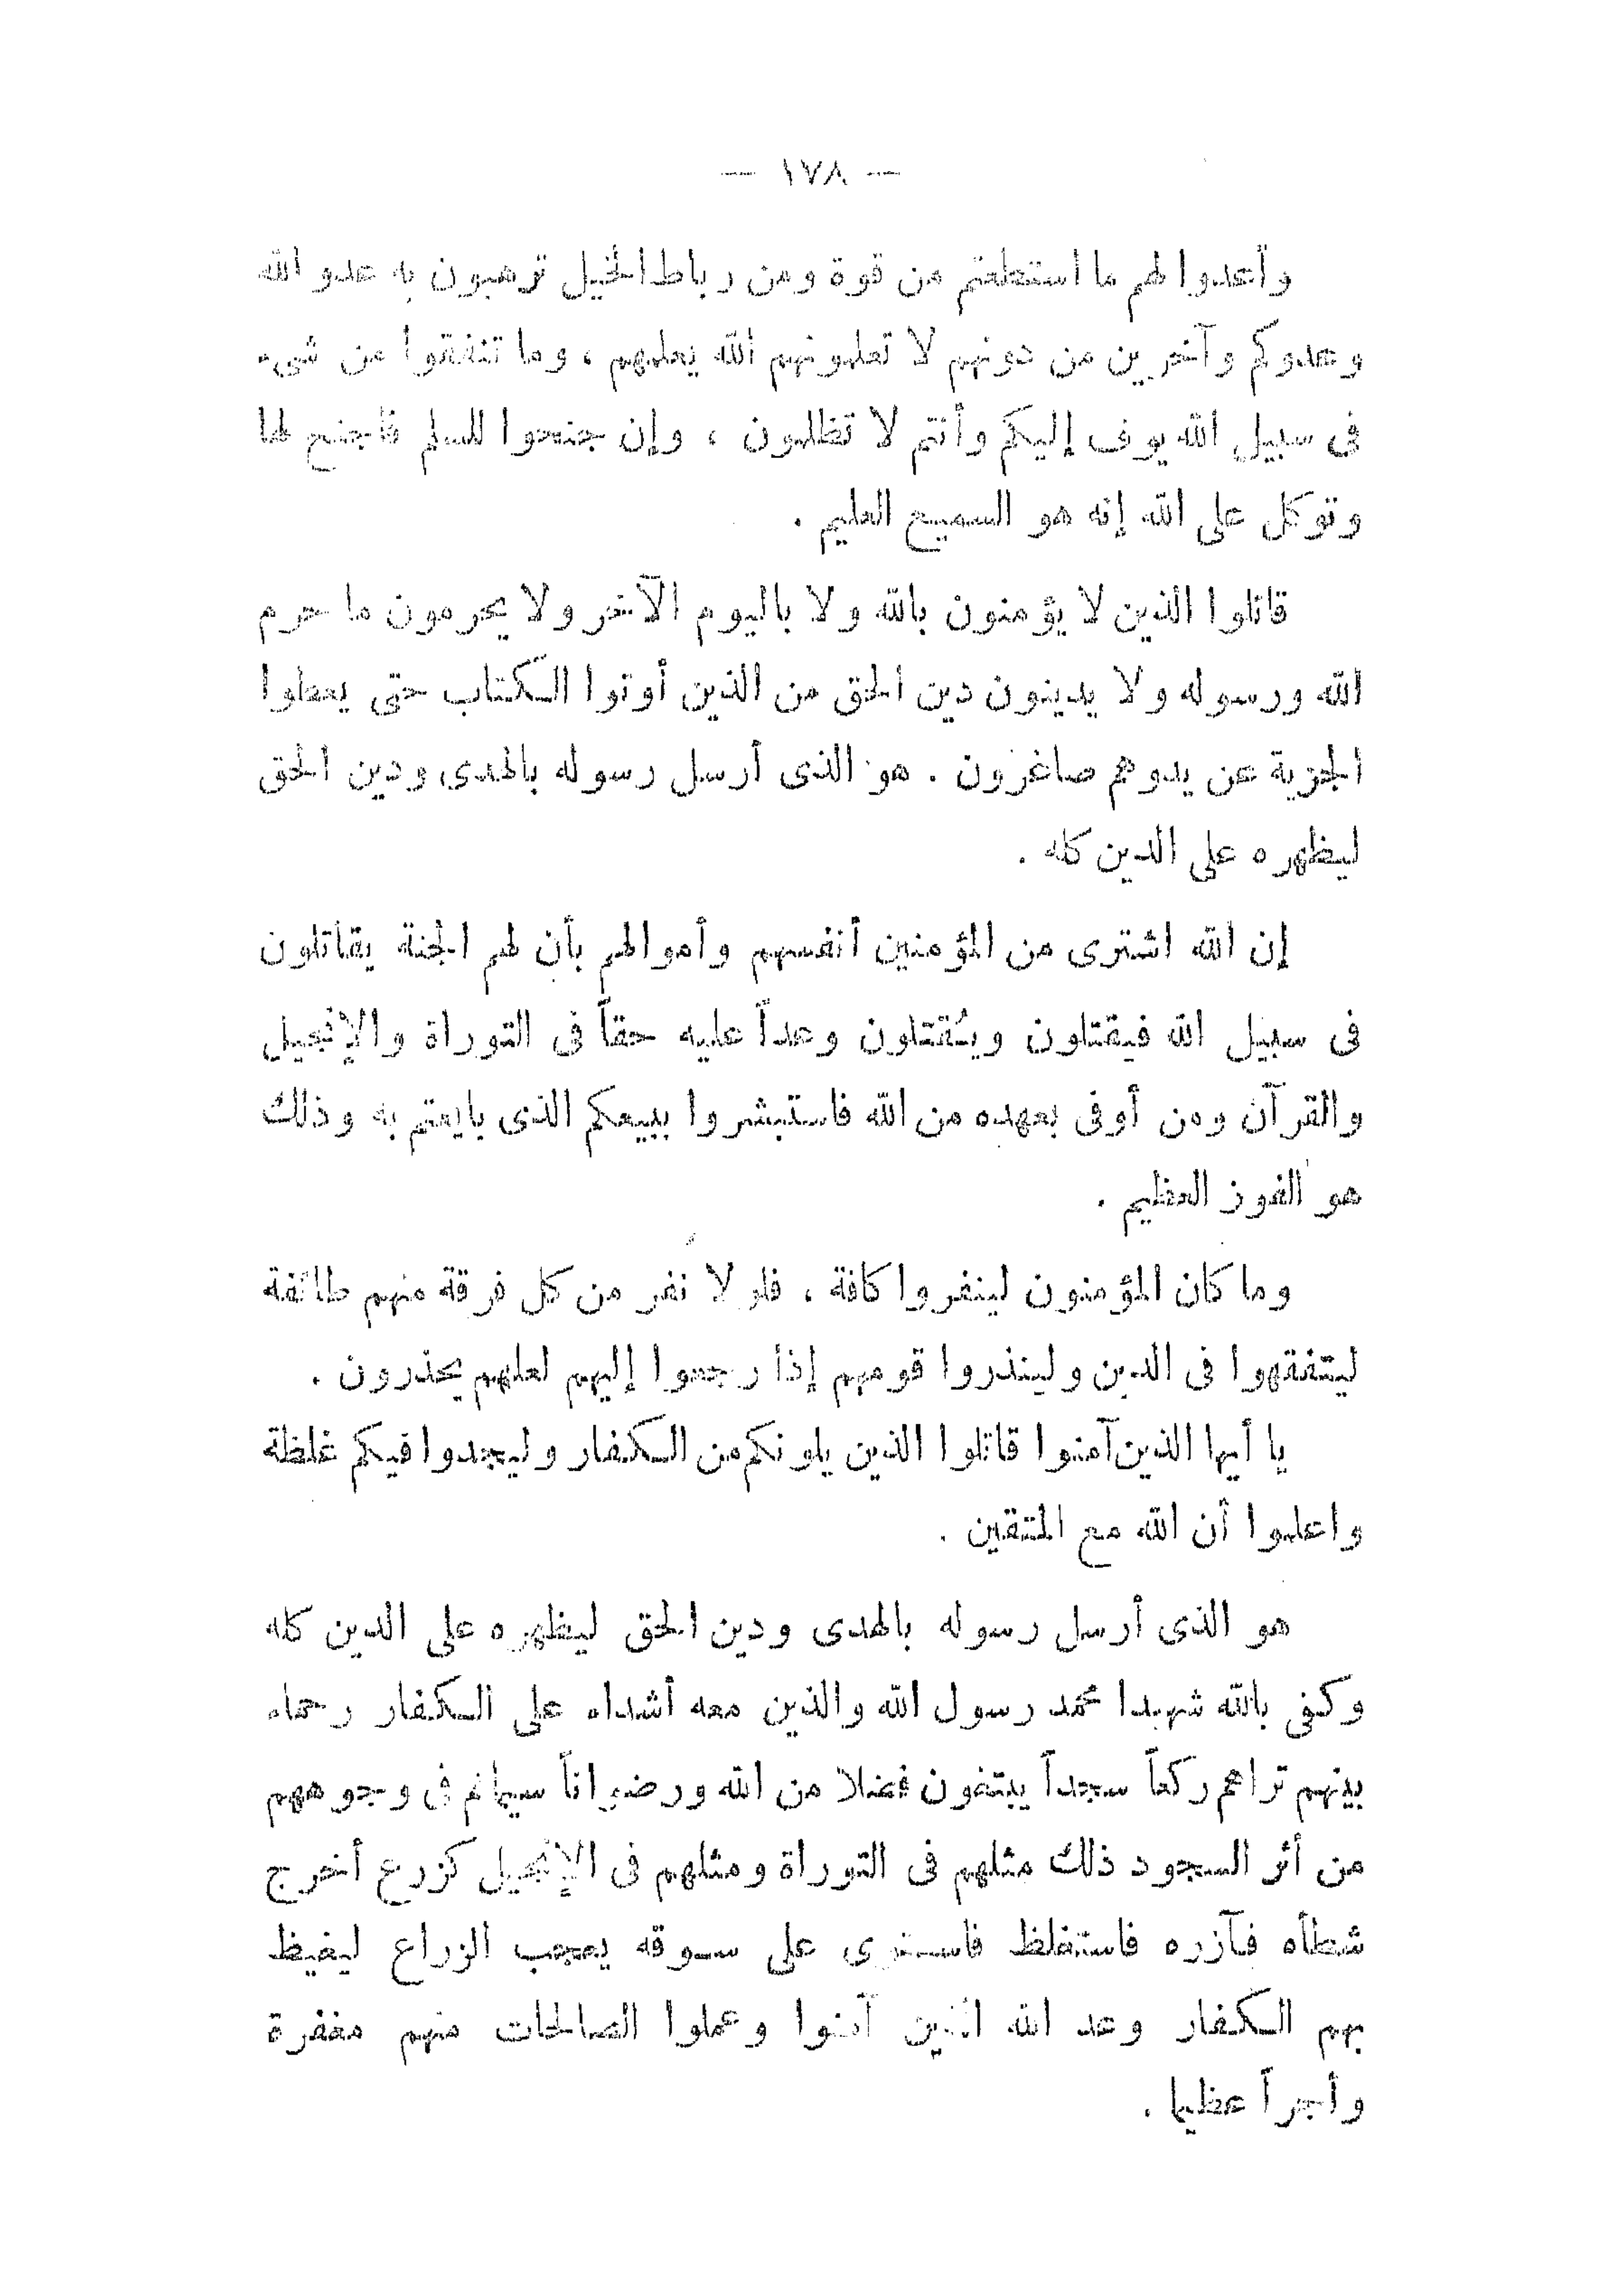 — ١٧٨ —
وأعدوا لهم ما استطعتم من قوة ومن رباط الخيل ترهبون به عدو الله
وعدوكم وآخرين من دونهم لا تعلمونهم الله يعلمهم ، وما تنفقوا من شىء
فى سبيل الله يوف إليكم وأنتم لا تظلمون ، وإن جنحوا للسلم فاجنح لها
وتوكل على الله إنه هو السميع العليم .
قاتلوا الذين لا يؤمنون بالله ولا باليوم الآخر ولا يحرمون ما حرم
الله ورسوله ولا يدينون دين الحق من الذين أوتوا الكتاب حتى يعطوا
الجزية عن يدوهم صاغرون . هو الذى أرسل رسوله بالهدى ودين الحق
ليظهره على الدين كله .
إن الله اشترى من المؤمنين أنفسهم وأموالهم بأن لهم الجنة يقاتلون
فى سبيل الله فيقتلون ويُقتلون وعداً عليه حقاً فى التوراة والإنجيل
والقرآن ومن أوفى بعهده من الله فاستبشروا ببيعكم الذى بايعتم به وذلك
هو الفوز العظيم .
وما كان المؤمنون لينفروا كافة ، فلولا نفر من كل فرقة منهم طائفة
ليتفقهوا فى الدين ولينذروا قومهم إذا رجعوا إليهم لعلهم يحذرون .
يا أيها الذين آمنوا قاتلوا الذين يلونكم من الكفار وليجدوا فيكم غلظة
واعلموا أن الله مع المتقين .
هو الذى أرسل رسوله بالهدى ودين الحق ليظهره على الدين كله
وكفى بالله شهيدا محمد رسول الله والذين معه أشداء على الكفار رحماء
بينهم تراهم ركعاً سجداً يبتغون فضلا من الله ورضواناً سيماهم فى وجوههم
من أثر السجود ذلك مثلهم فى التوراة ومثلهم فى الإنجيل كزرع أخرج
شطأه فآزره فاستغلظ فاستوى على سوقه يعجب الزراع ليغيظ
بهم الكفار وعد الله الذين آمنوا وعملوا الصالحات منهم مغفرة
وأجراً عظيما .